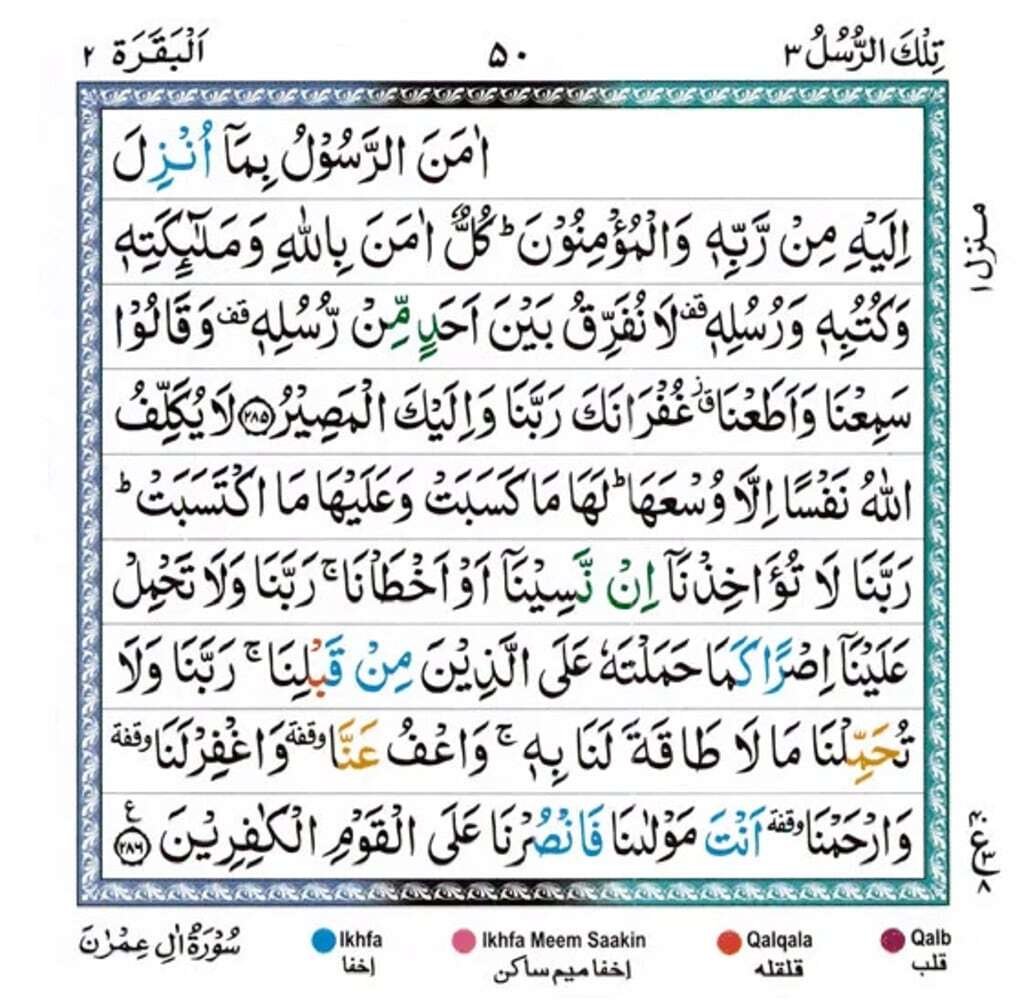 تِلْكَ الرُّسُلُ ٣ ٥٠ اَلْبَقَرَة ٢
اٰمَنَ الرَّسُوْلُ بِمَآ اُنْزِلَ
اِلَيْهِ مِنْ رَّبِّهٖ وَالْمُؤْمِنُوْنَ ؕ كُلٌّ اٰمَنَ بِاللّٰهِ وَمَلٰٓئِكَتِهٖ
وَكُتُبِهٖ وَرُسُلِهٖ قف لَا نُفَرِّقُ بَيْنَ اَحَدٍ مِّنْ رُّسُلِهٖ قف وَقَالُوْا
سَمِعْنَا وَاَطَعْنَا ق ز غُفْرَانَكَ رَبَّنَا وَاِلَيْكَ الْمَصِيْرُ ٢٨٥ لَا يُكَلِّفُ
اللّٰهُ نَفْسًا اِلَّا وُسْعَهَا ؕ لَهَا مَا كَسَبَتْ وَعَلَيْهَا مَا اكْتَسَبَتْ ؕ
رَبَّنَا لَا تُؤَاخِذْنَآ اِنْ نَّسِيْنَآ اَوْ اَخْطَاْنَا ۚ رَبَّنَا وَلَا تَحْمِلْ
عَلَيْنَآ اِصْرًا كَمَا حَمَلْتَهٗ عَلَى الَّذِيْنَ مِنْ قَبْلِنَا ۚ رَبَّنَا وَلَا
تُحَمِّلْنَا مَا لَا طَاقَةَ لَنَا بِهٖ ۚ وَاعْفُ عَنَّا وقفة وَاغْفِرْ لَنَا وقفة
وَارْحَمْنَا وقفة اَنْتَ مَوْلٰىنَا فَانْصُرْنَا عَلَى الْقَوْمِ الْكٰفِرِيْنَ ٢٨٦ ع
منزل ١
ع ٣ ٨
سُوْرَةُ اٰلِ عِمْرٰنَ
Ikhfa
اخفا
Ikhfa Meem Saakin
اخفا ميم ساكن
Qalqala
قلقله
Qalb
قلب